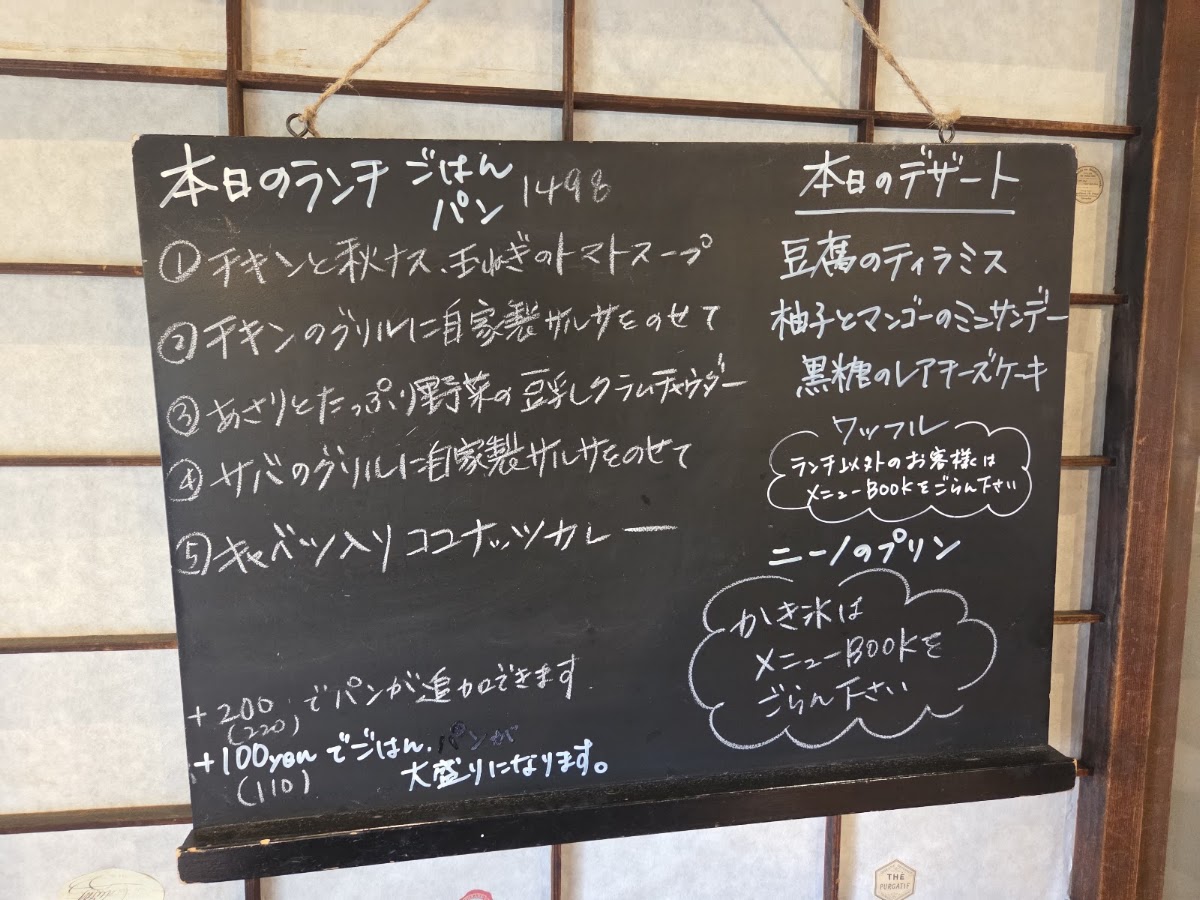 本日のランチ ごはん
パン 1498
①チキンと秋ナス、玉ねぎのトマトスープ
②チキンのグリルに自家製サルサをのせて
③あさりとたっぷり野菜の豆乳クラムチャウダー
④サバのグリルに自家製サルサをのせて
⑤キャベツ入りココナッツカレー
+200でパンが追加できます
(220)
+100yenでごはん、パンが
(110)
大盛りになります。
本日のデザート
豆腐のティラミス
柚子とマンゴーのミニサンデー
黒糖のレアチーズケーキ
ワッフル
ランチ以外のお客様は
メニューBOOKをごらん下さい
ニーノのプリン
かき氷は
メニューBOOKを
ごらん下さい
THE
PURGATIF